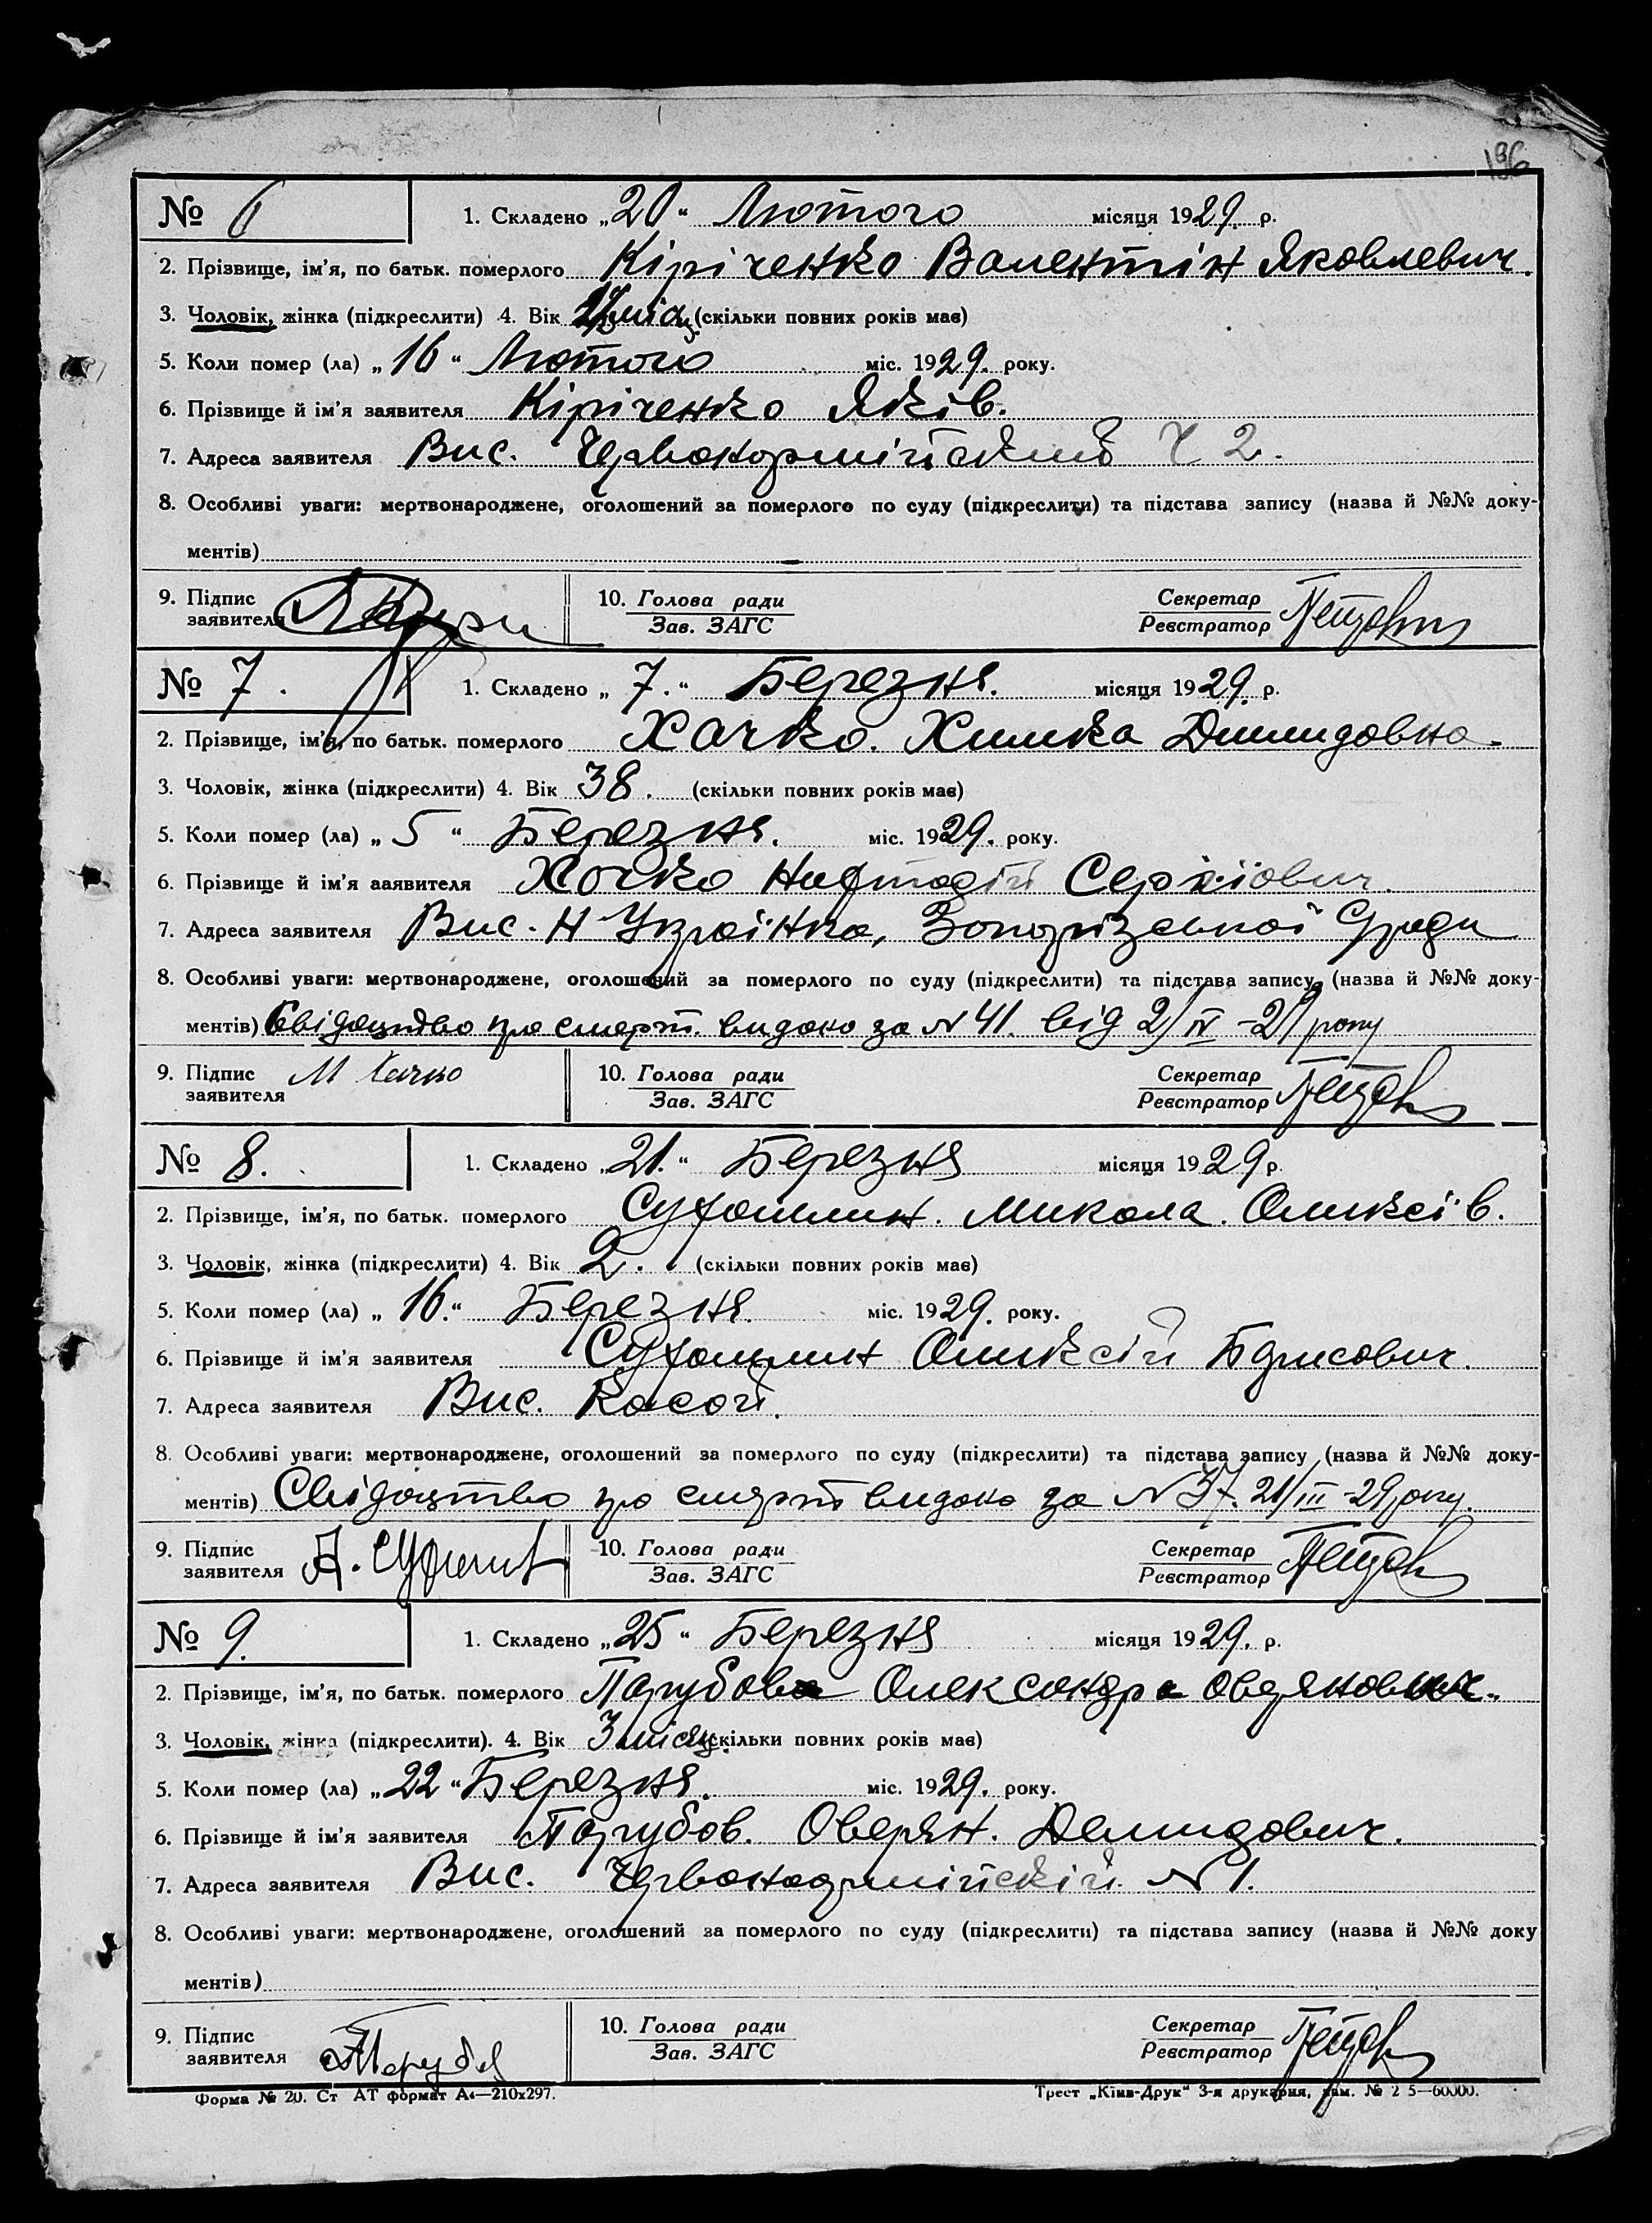 196
№ 6 1. Складено „20“ Лютого місяця 1929. р.
2. Прізвище, ім’я, по батьк. померлого Кіріченко Валентін Яковлевич.
3. Чоловік, жінка (підкреслити) 4. Вік міся (скільки повних років має)
5. Коли помер (ла) „16“ Лютого міс. 1929. року.
6. Прізвище й ім’я заявителя Кіріченко Яків.
7. Адреса заявителя Вис. Ч 2.
8. Особливі уваги: мертвонароджене, оголошений за померлого по суду (підкреслити) та підстава запису (назва й №№ доку-
ментів)
9. Підпис заявителя 10. Голова ради Зав. ЗАГС Секретар Реєстратор
№ 7. 1. Складено „7.“ Березня. місяця 1929. р.
2. Прізвище, ім’я, по батьк. померлого Хачко. Химка Димидовна.
3. Чоловік, жінка (підкреслити) 4. Вік 38. (скільки повних років має)
5. Коли помер (ла) „5“ Березня. міс. 1929. року.
6. Прізвище й ім’я заявителя Хочко Сергієвич.
7. Адреса заявителя Вис. Н Українка, Запорізської Сради
8. Особливі уваги: мертвонароджене, оголошений за померлого по суду (підкреслити) та підстава запису (назва й №№ доку-
ментів) Свідоцтво про смерт. видано за N 41. від
9. Підпис заявителя М Хачко 10. Голова ради Зав. ЗАГС Секретар Реєстратор
№ 8. 1. Складено „21.“ Березня місяця 1929 р.
2. Прізвище, ім’я, по батьк. померлого Сухомлин. Микола. Оликсіїв.
3. Чоловік, жінка (підкреслити) 4. Вік 2. (скільки повних років має)
5. Коли помер (ла) „16.“ Березня. міс. 1929. року.
6. Прізвище й ім’я заявителя Сухомлин Оликсій Борисович.
7. Адреса заявителя Вис.
8. Особливі уваги: мертвонароджене, оголошений за померлого по суду (підкреслити) та підстава запису (назва й №№ доку-
ментів) Свідоцтво про смерт видано за N 37. 21/III-29 року.
9. Підпис заявителя 10. Голова ради Зав. ЗАГС Секретар Реєстратор
№ 9. 1. Складено „25“ Березня місяця 1929. р.
2. Прізвище, ім’я, по батьк. померлого Парубова Олександра
3. Чоловік, жінка (підкреслити). 4. Вік 3 місяц. скільки повних років має)
5. Коли помер (ла) „22“ Березня. міс. 1929. року.
6. Прізвище й ім’я заявителя Парубов. Оверян. Демидович.
7. Адреса заявителя Вис. Червоноармійскій N 1.
8. Особливі уваги: мертвонароджене, оголошений за померлого по суду (підкреслити) та підстава запису (назва й №№ доку
ментів)
9. Підпис заявителя 10. Голова ради Зав. ЗАГС Секретар Реєстратор
Форма № 20. Ст АТ формат А4—210х297. Трест „Київ-Друк“ 3-я друкарня, зам. № 2 5—60000.